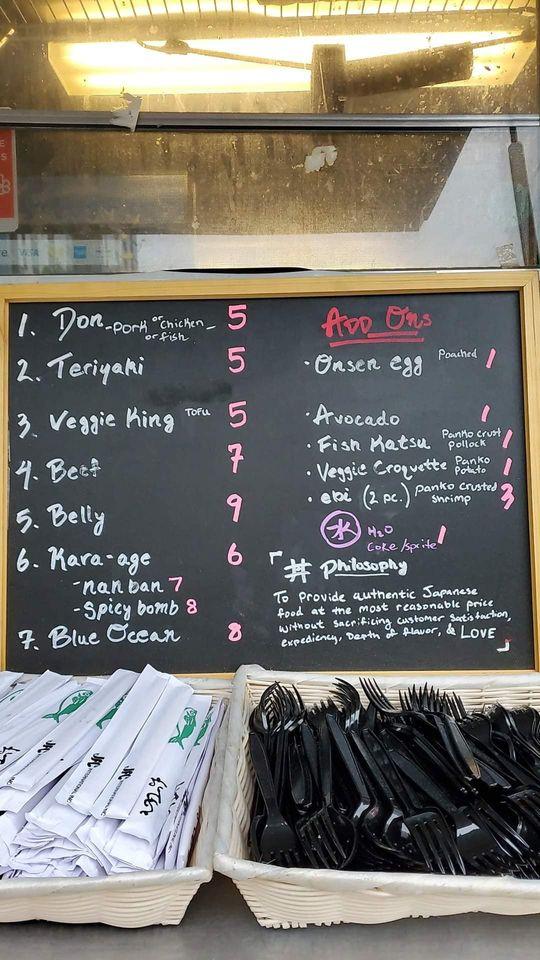 VISA
1. Don -Pork or Chicken - 5
or fish
2. Teriyaki 5
3. Veggie King Tofu 5
4. Beef 7
5. Belly 9
6. Kara-age 6
-nanban 7
-Spicy bomb 8
7. Blue Ocean 8
ADD ONs
• Onsen egg Poached 1
• Avocado 1
• Fish Katsu Panko Crust Pollock 1
• Veggie Croquette Panko Potato 1
• ebi (2 pc.) Panko Crusted Shrimp 3
水 H2O
Coke/Sprite 1
「# Philosophy
To Provide authentic Japanese
food at the most reasonable price
without sacrificing customer satisfaction,
expediency, Depth of flavor, & LOVE 」